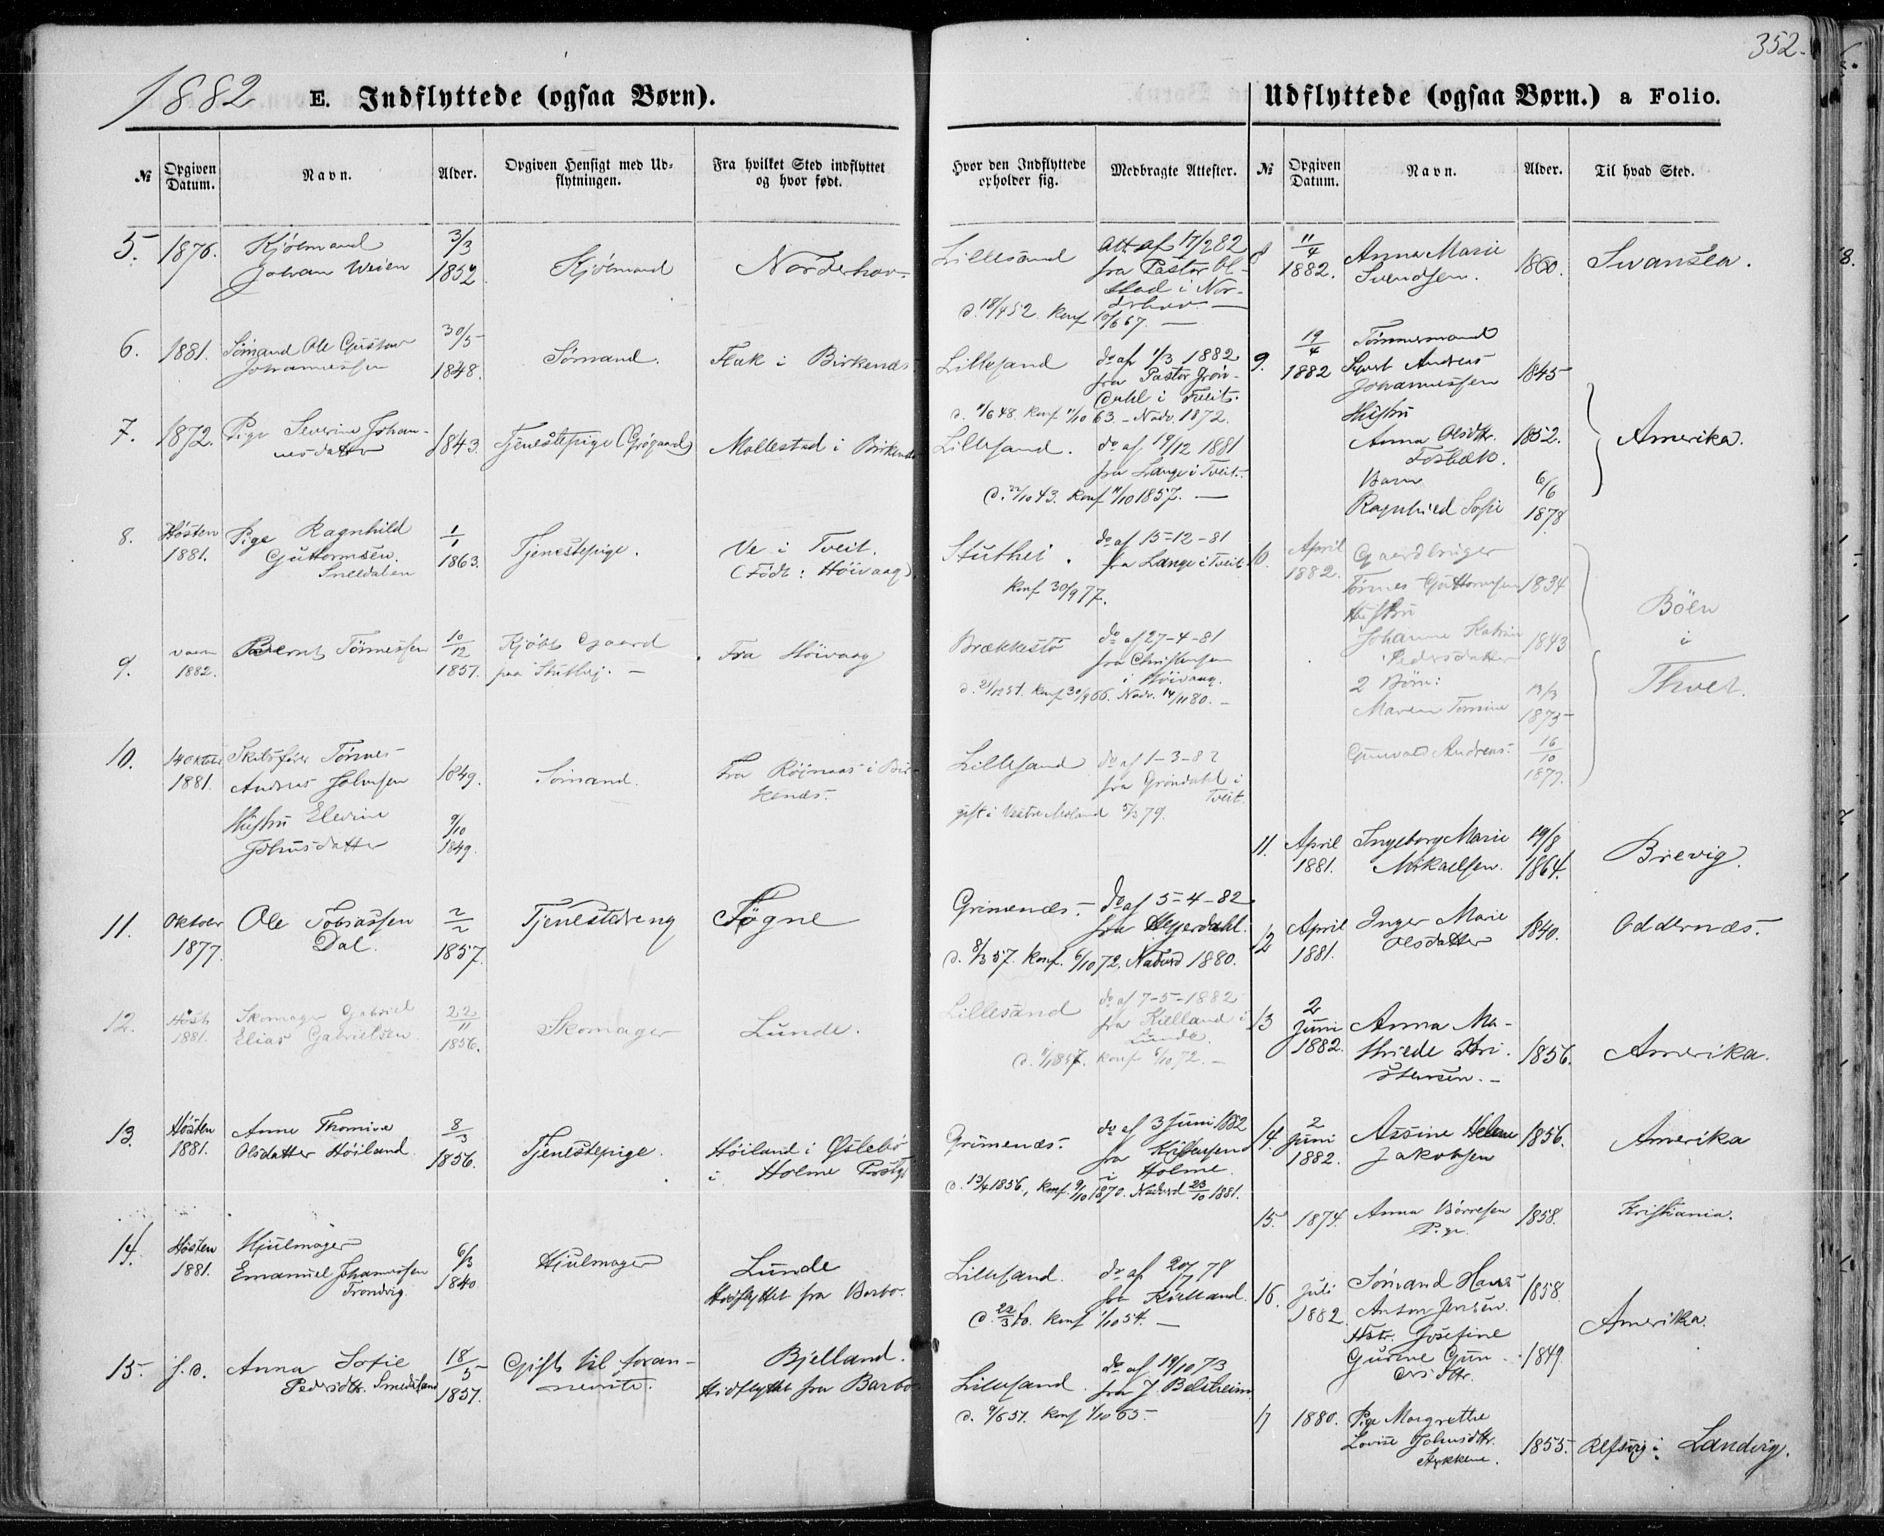 352.
1882 E. Indflyttede (ogsaa Børn).
Udflyttede (ogsaa Børn.) a Folio.
№ Opgiven Datum. Navn. Alder. Opgiven Hensigt med Udflytningen. Fra hvilket Sted indflyttet og hvor født.
Hvor den Indflyttede opholder sig. Medbragte Attester.
№ Opgiven Datum. Navn. Alder. Til hvad Sted.
5. 1876. Kjøbmand 3/3
Johan Weien 1852 Kjøbmand Norderhov.
Lillesand Att af 17/2 82
fra Pastor
stad i Nor-
derhov
d. 18/4 52. Konf 10/6 67.
6. 1881. Sømand Ole Gustav 30/5
Johannessen 1848. Sømand. Flak i Birkenæs.
Lillesand do af 1/3 1882
fra Pastor Grøn-
dahl i Tveit.
7. 1872. Pige Severine Johan-
nesdatter 1843. Tjenestepige (Grøgaard) Mollestad i Birkenæs
Lillesand. do af 19/12 1881
fra Lange i Tveit.
Konf 11/10 1857.
8. Høsten 1881. Pige Ragnhild
Guttormsen 1/1 1863. Tjenestepige. Ve i Tveit.
(Født: Høivaag).
Stuthei. do af 15-12-81
fra Lange i Tveit
Konf 30/9 77.
9. 1882. Bernt Tønnessen 10/12 1857. Kjøbt Gaard
paa Stuthej. Fra Høivaag
Brækkestø do af 27-4-81
fra Christensen
i Høivaag.
10. 14 Oktober 1881. Skibsfører Tønnes
Andreas Johnsen 1849. Sømand. Fra Røinaas i Bir-
kenæs.
Hustru Elevine
Johnsdatter 9/10 1849.
Lillesand do af 1-3-82
fra Grøndahl i
Tveit.
gift i Vestre Moland 5/3 79.
11. Oktober 1877. Ole Tobiassen
Dal. 2/2 1857. Tjenestedreng Søgne
Grimenæs. do af 5-4-82
fra Heyerdahl.
d. 8/3 57. Konf. 6/10 72. Naturd 1880.
12. Høst 1881. Skomager Gabriel
Elias Gabrielsen 22/11 1856. Skomager Lunde.
Lillesand do af 7-5-1882
fra Kielland i
Lunde.
Konf 6/10 72.
13. Høsten 1881. Anne Thomine
Olsdatter Høiland 8/3 1856. Tjenestepige. Høiland i Øslebø
i Holme Præstgj
Grimenæs. do af 3 Juni 1882
fra Kristensen
i Holme.
d. 13/4 1856, Konf. 9/10 1870. Naturd 23/10 1881.
14. Høsten 1881. Hjulmager
Emanuel Johannessen
Trondvig. 6/3 1840 Hjulmager Lunde
Hidflyttet fra Barbo.
Lillesand. do af 20/7 78
fra Kielland.
d. 22/3 40. Konf 1/10 54.
15. s.d. Anna Sofie
Pedersdtr. Smedsland 18/5 1857. Gift til foran-
nevnte. Bjelland.
Hidflyttet fra Barbo
Lillesand. do af 19/10 73
fra J. Belsheim
8 11/4 1882. Anne Marie
Svendsen. 1860. Swansea.
9. 19/4 1882 Tømmermand
Andreas
Johannessen 1845
Hustru
Anna Olsdtr. 1852.
Fosbæk.
Barn
Ragnhild Sofie 6/6 1878 Amerika.
10. April 1882. Gaardbruger
Tønnes Guttormsen 1834
Hustru
Johanne Katrine
Pedersdatter 1843
2 Børn:
Maren Tomine 13/3 1873
Gunvald Andreas. 16/10 1877. Bøen
i
Thvet.
11. April 1881. Ingeborg Marie
Mikaelsen. 19/8 1864. Brevig.
12 April 1881. Inger Marie
Olsdatter 1840. Oddernæs.
13 2 Juni 1882. Anna Ma-
thilde Kri-
stensen. 1856. Amerika.
14. 2 Juni 1882. Assine Helene
Jakobsen 1856. Amerika
15. 1874. Anna Børresen
Pige. 1858. Kristiania.
16. Juli 1882. Sømand Hans
Anton Jensen. 1858.
Hstr. Josefine
Gurine Gun-
dersdtr. 1849. Amerika.
17 1880. Pige Margrethe
Lovise Johnsdtr.
1855. Refsvig i Landvig.